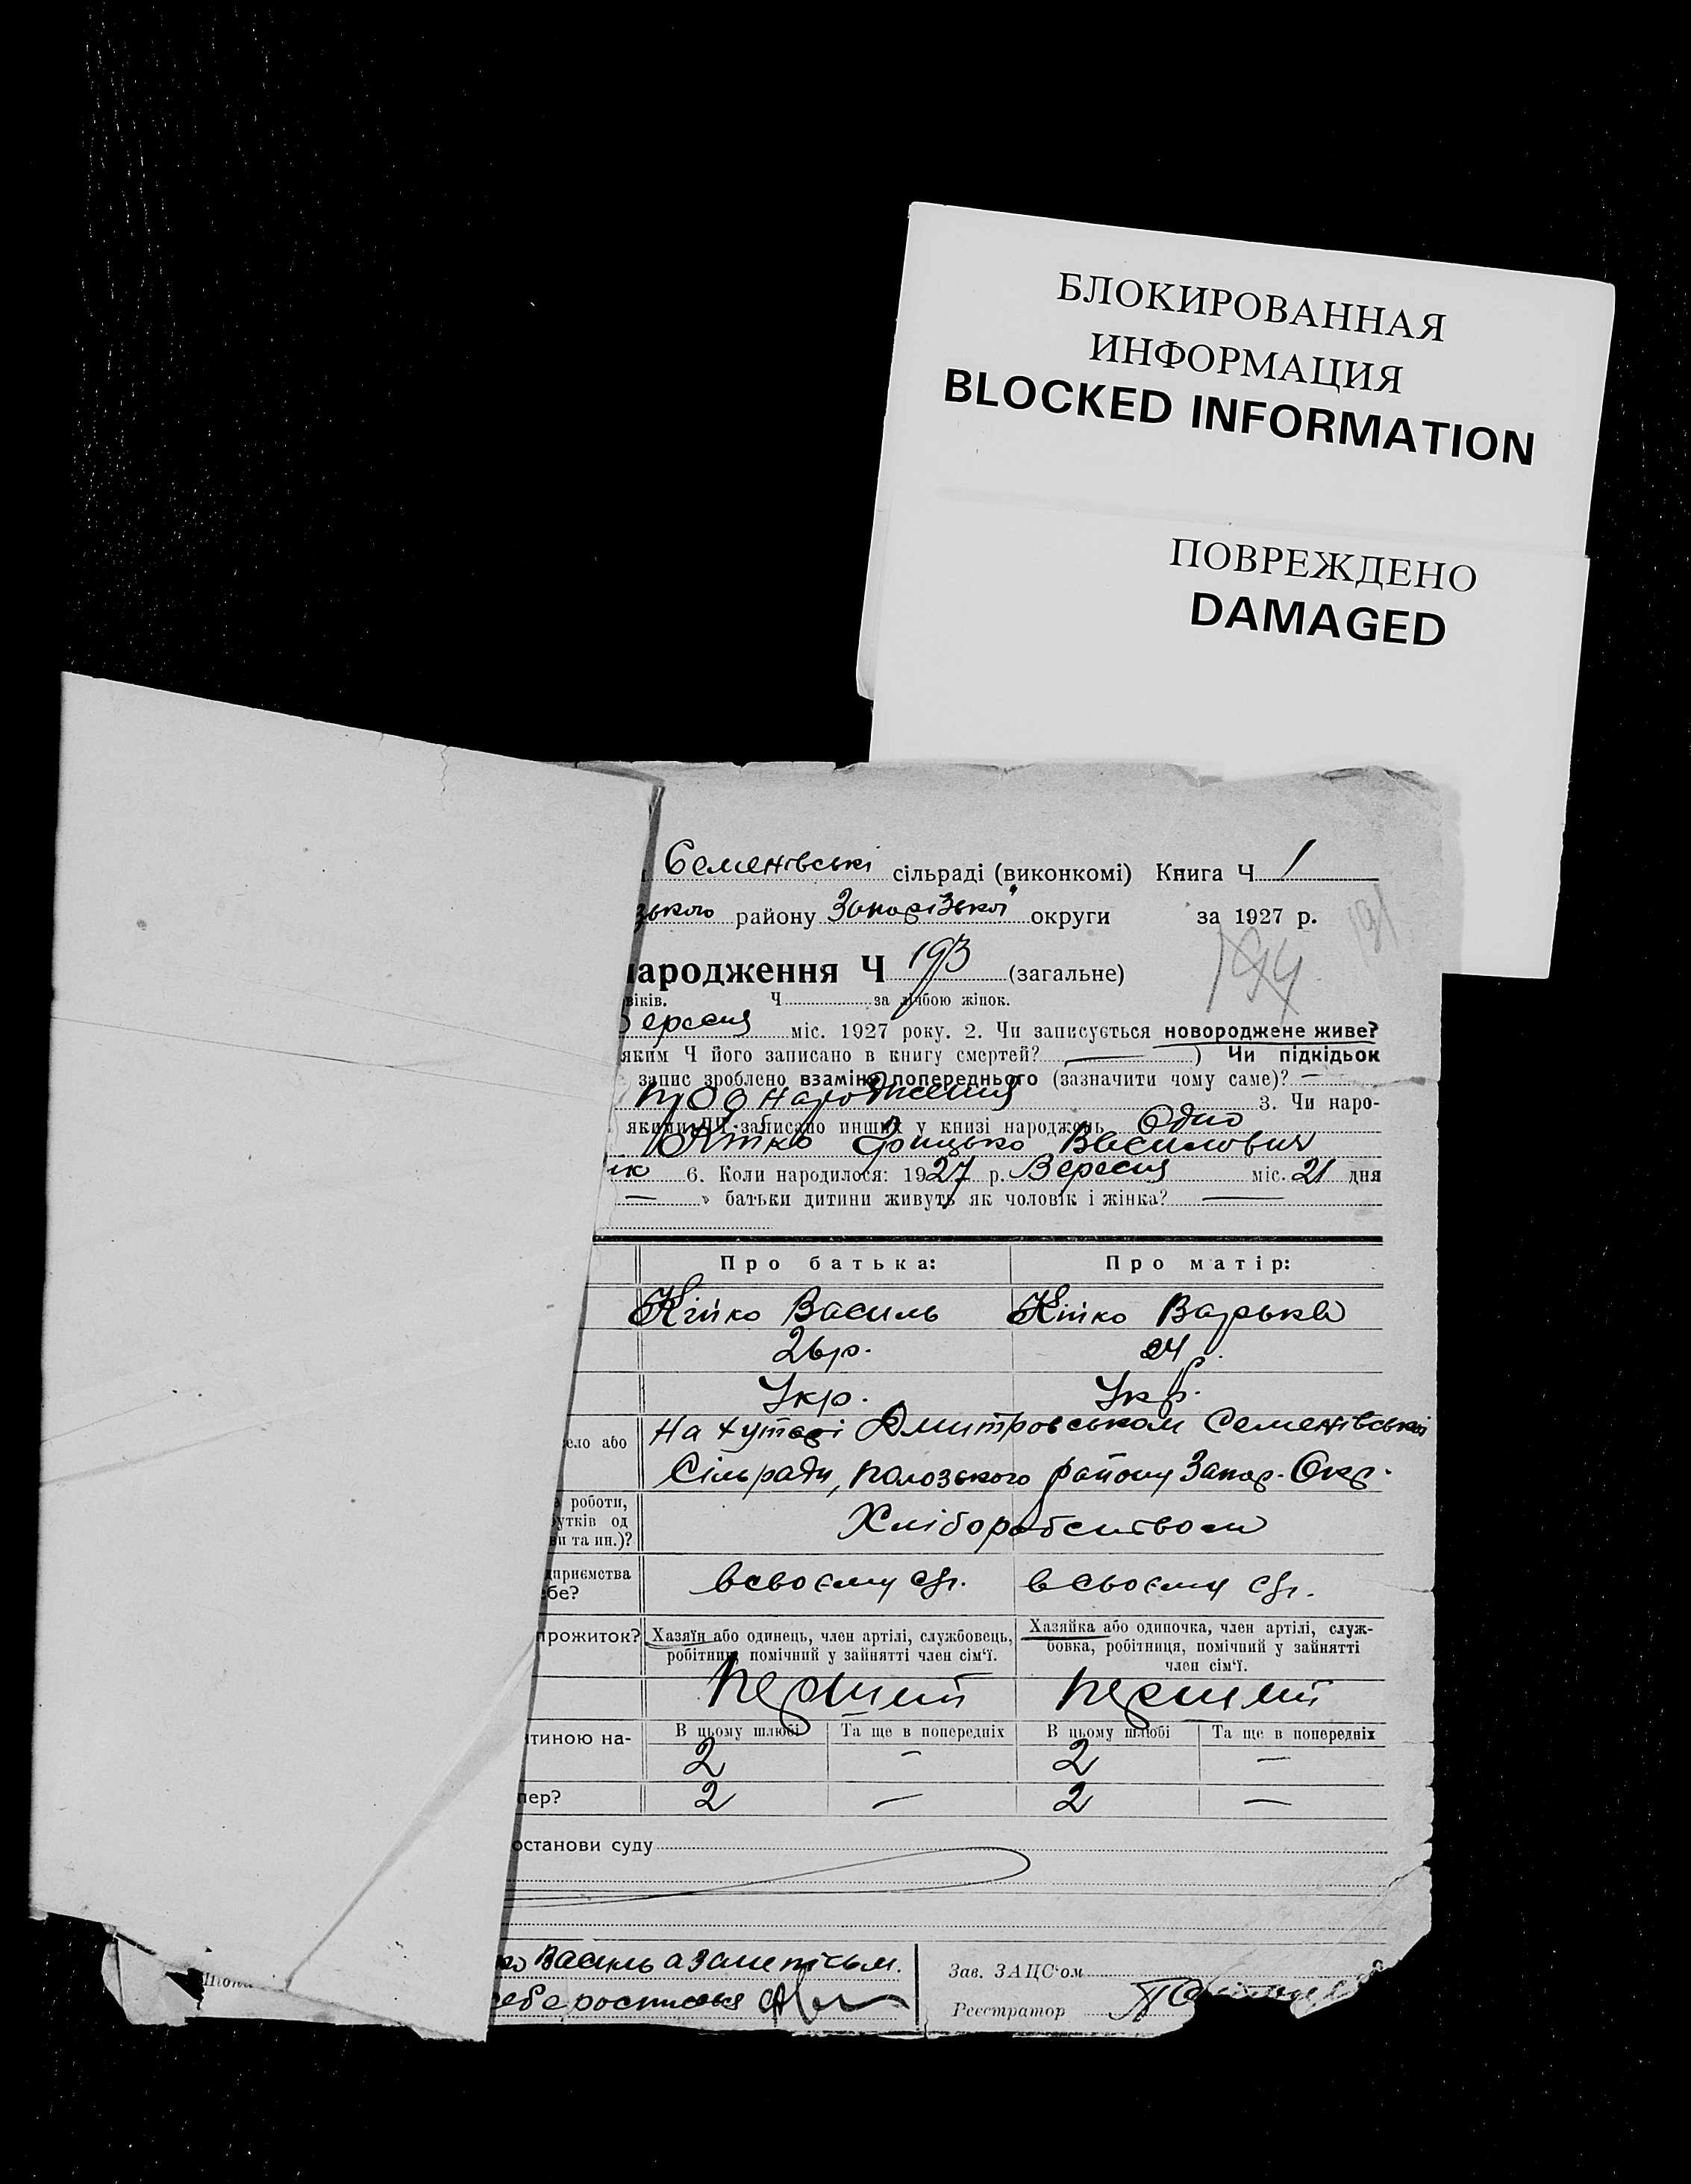 БЛОКИРОВАННАЯ
ИНФОРМАЦИЯ
BLOCKED INFORMATION
ПОВРЕЖДЕНО
DAMAGED
Семенівські сільраді (виконкомі) Книга Ч 1
зького району Запорізької округи за 1927 р.
191
народження Ч 193 (загальне)
194
віків. Ч за лічбою жінок.
Вересня міс. 1927 року. 2. Чи записується новороджене живе?
яким Ч його записано в книгу смертей? — ) Чи підкідьок
запис зроблено взамін попереднього (зазначити чому саме)? —
народження 3. Чи наро-
якими ЧЧ записано инших у книзі народжень Одно
Кійко Грицько Василович
ик 6. Коли народилося: 1927 р. Вересня міс. 21 дня
— » батьки дитини живуть як чоловік і жінка? —
Про батька: Про матір:
Кійко Василь Кійко Варька
26 р. 24 р.
Укр. Укр.
село або На хуторі Дмитровськом Семенівської
Сільради, Полозького району Запор. Окр.
роботи,
утків од
ви та ин.)?
Хліборобством
дприємства
бе?
всвоєму с/г. в своєму с/г.
прожиток? Хазяїн або одинець, член артілі, службовець, Хазяйка або одиночка, член артілі, служ-
робітник, помічний у зайнятті член сім'ї. бовка, робітниця, помічний у зайнятті
член сім'ї.
Перший Перший
В цьому шлюбі Та ще в попередніх В цьому шлюбі Та ще в попередніх
тиною на- 2 — 2 —
пер? 2 — 2 —
останови суду
ко Василь а за неписьм.
себе росписься
Зав. ЗАЦС'ом
Реєстратор